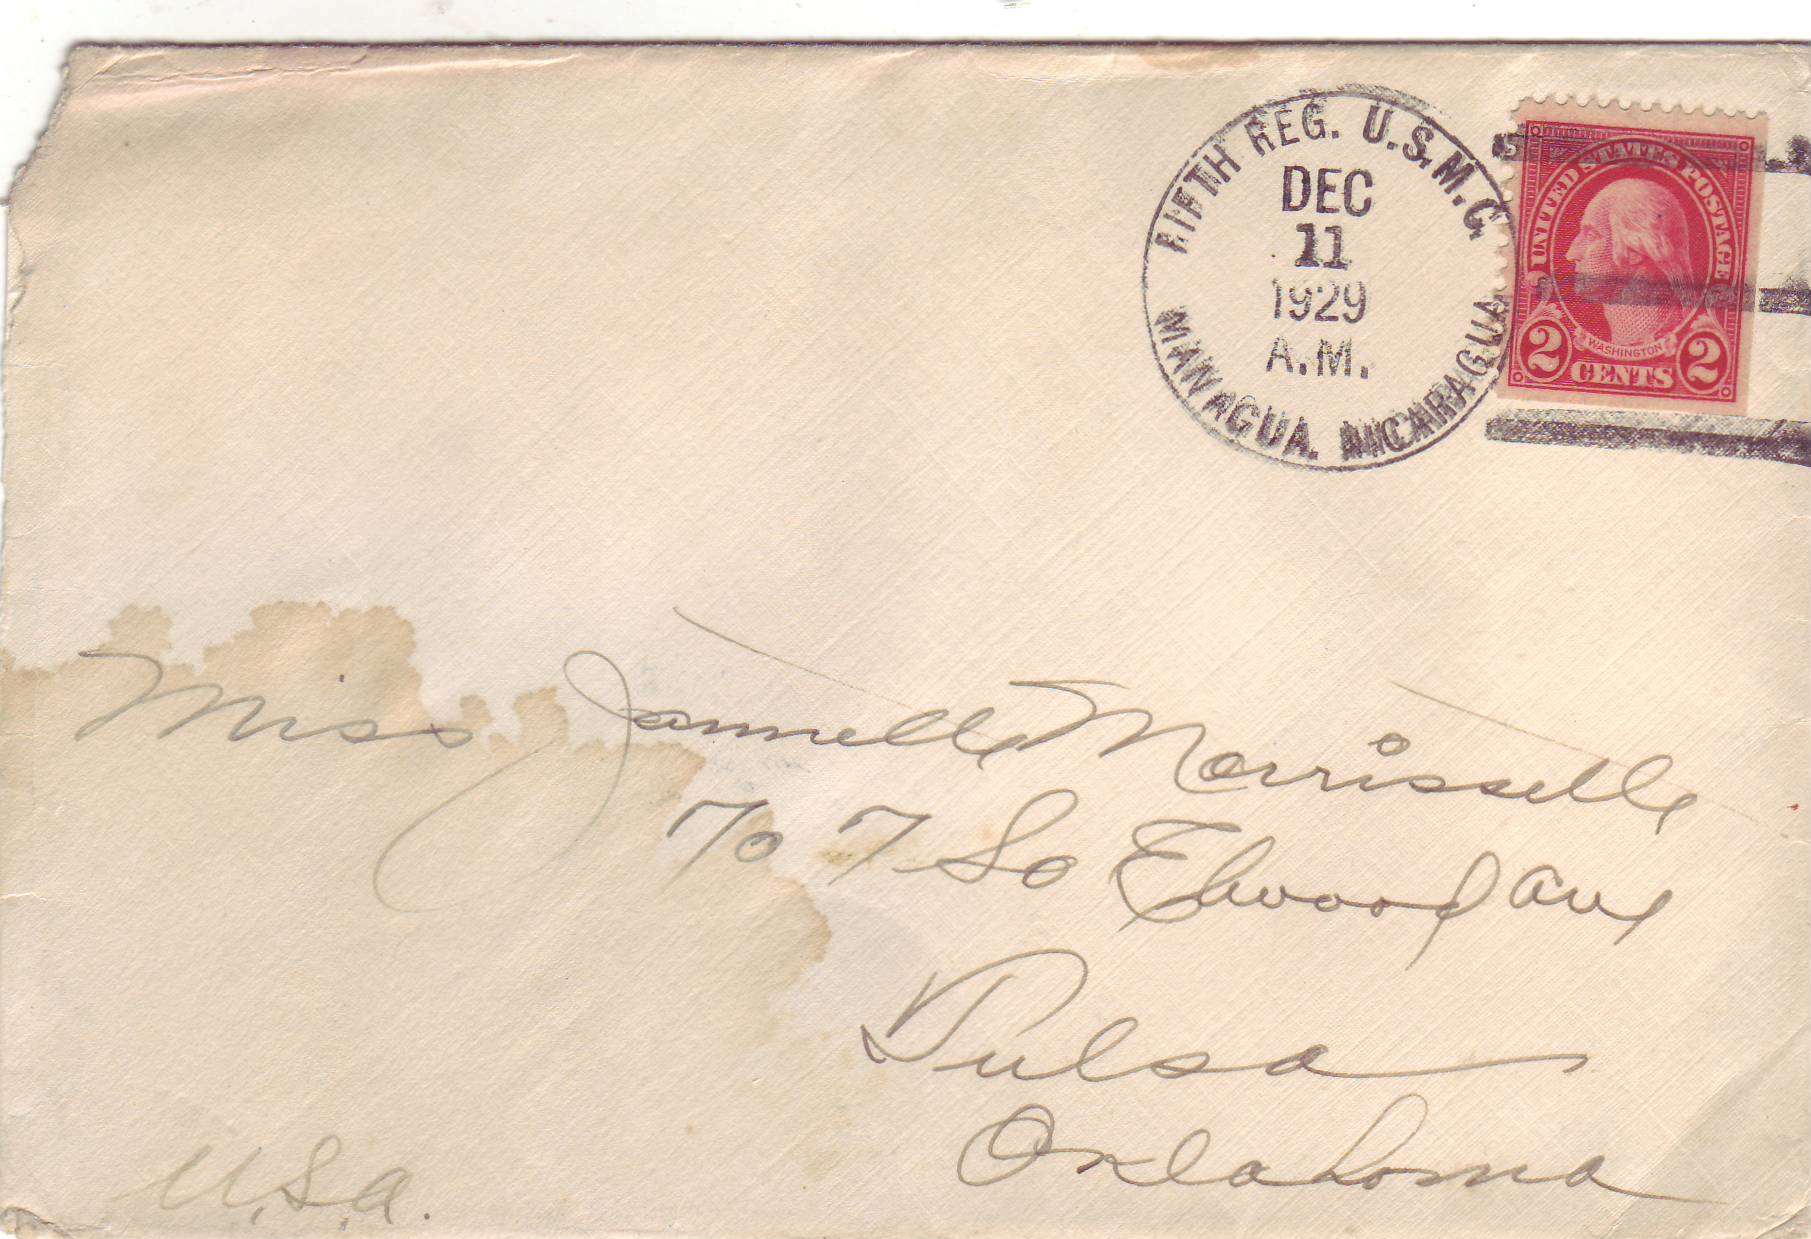 FIFTH REG. U.S.M.C.
DEC
11
1929
A.M.
MANAGUA. NICARAGUA
UNITED STATES POSTAGE
WASHINGTON
2 CENTS 2
Miss Jannelle Morrisselle
707 So Elwood Ave
Tulsa
Oklahoma
U.S.A.